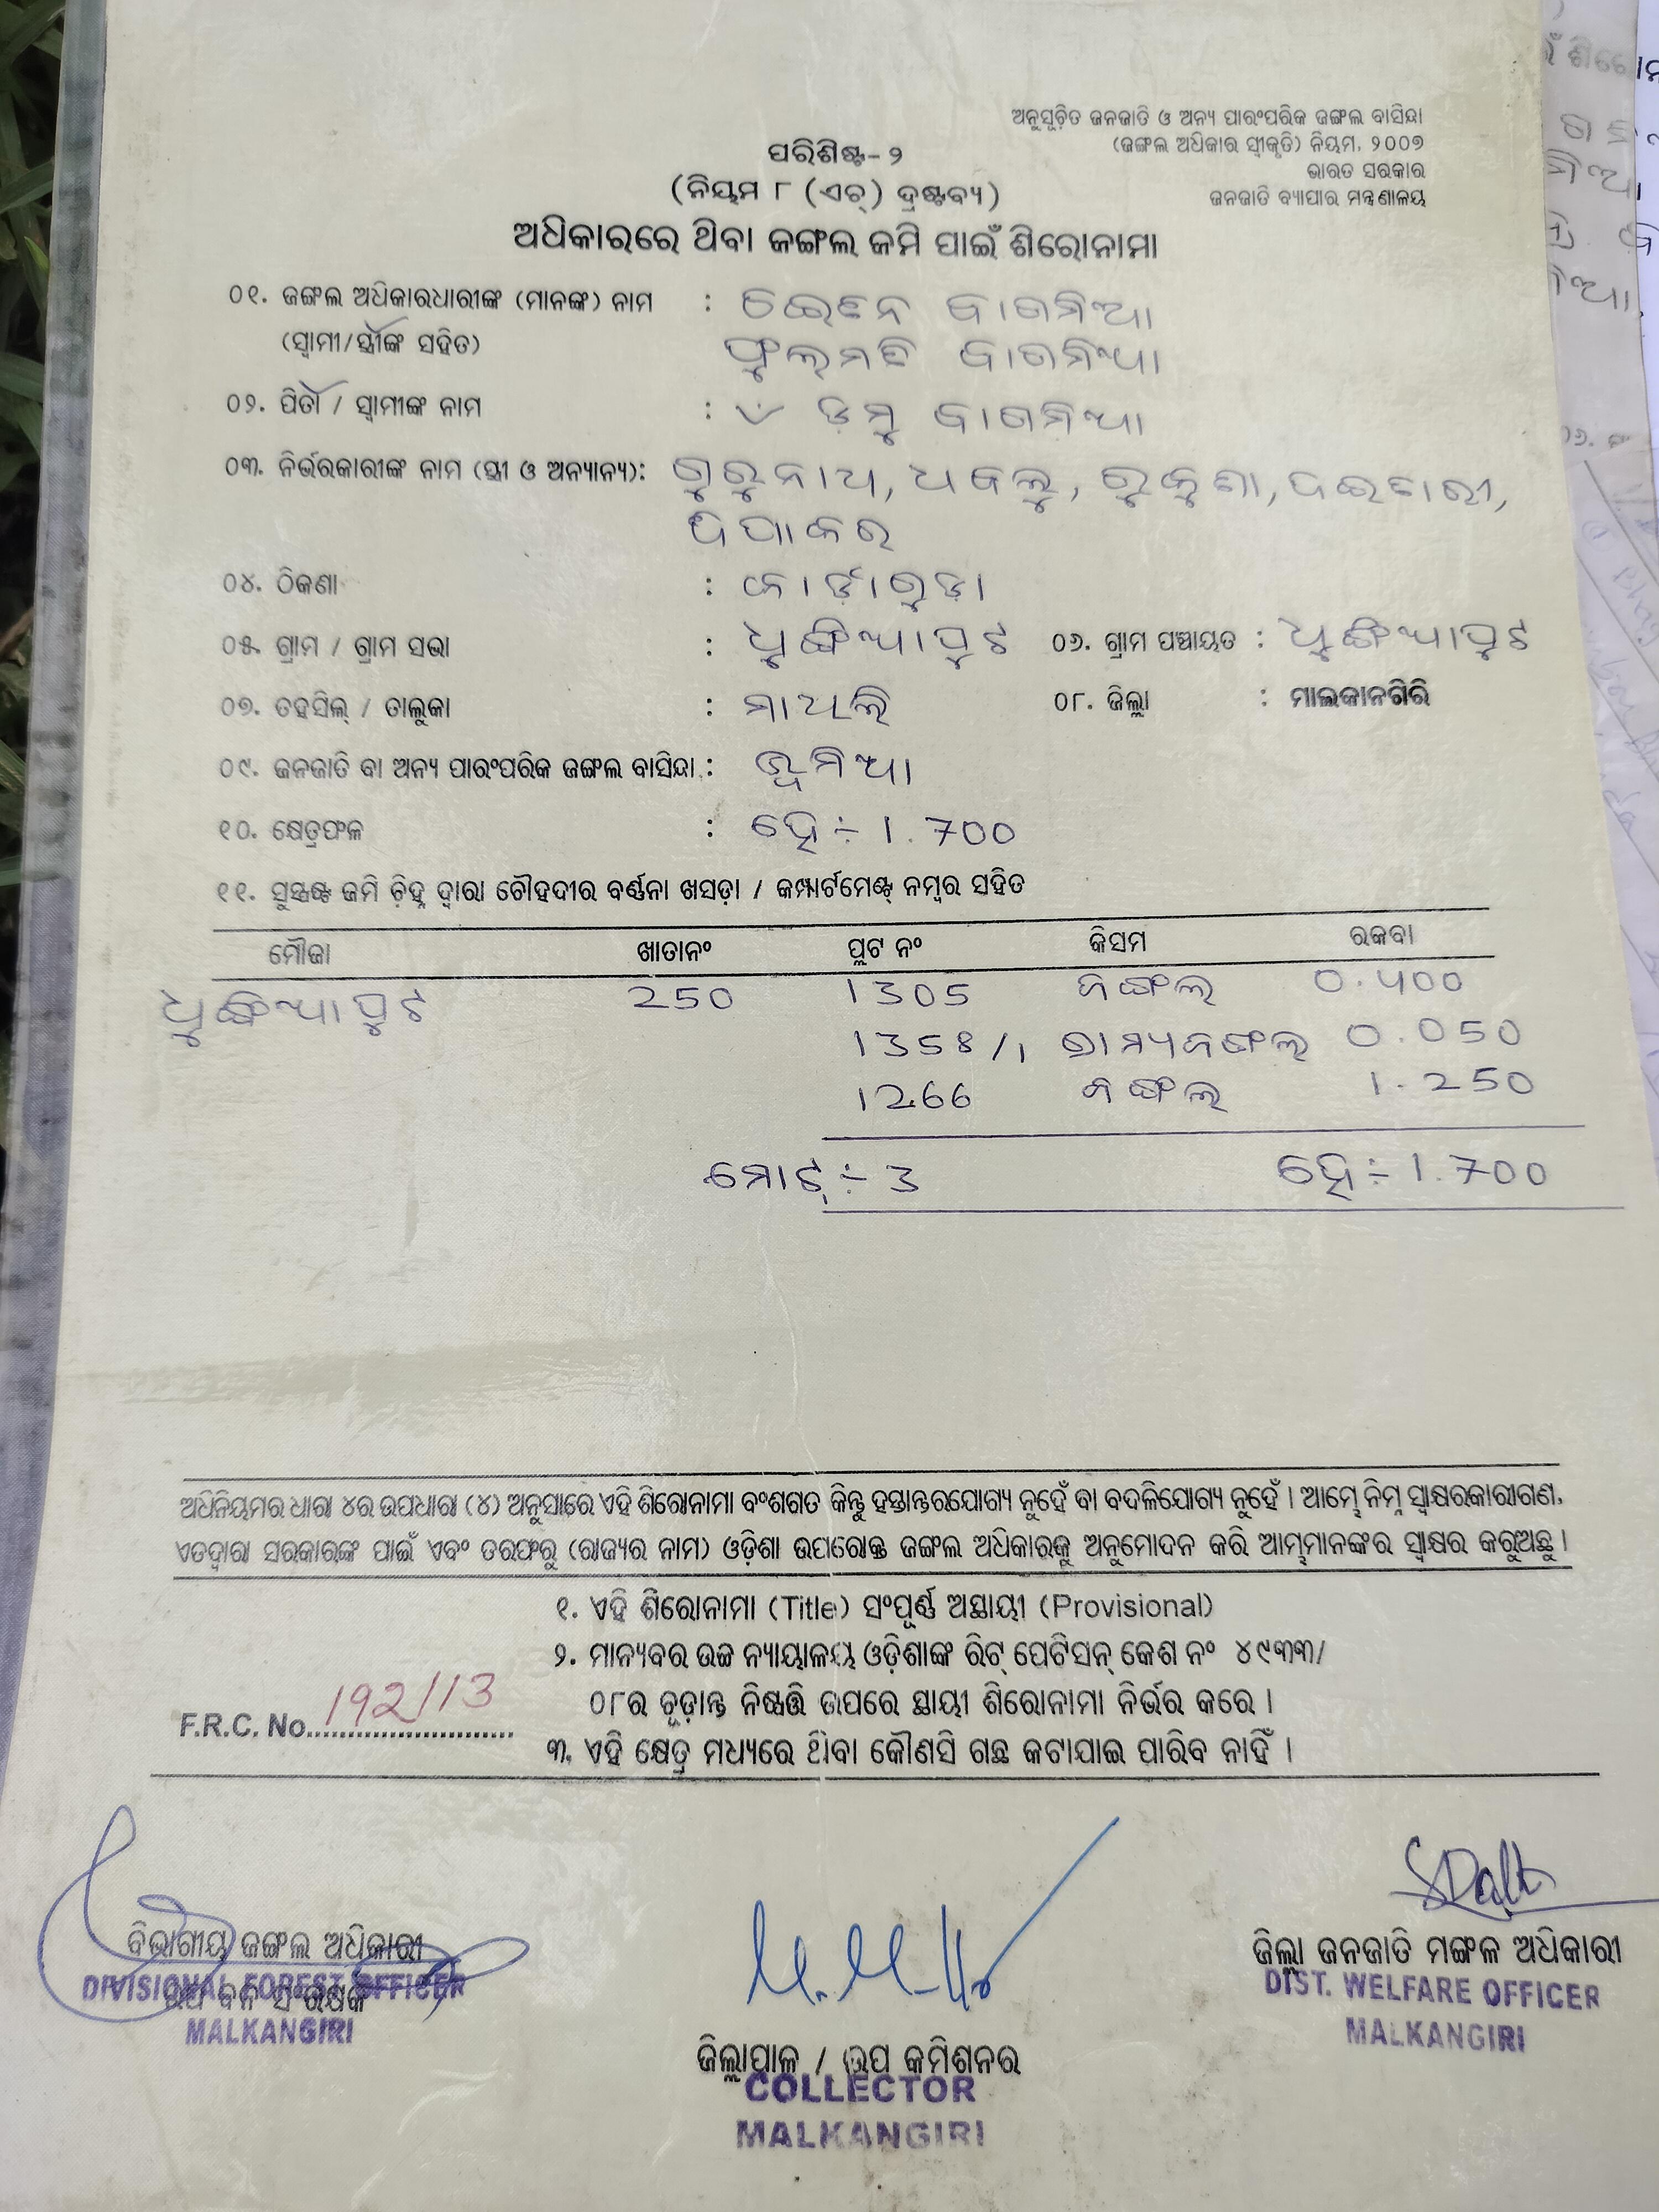 ଅନୁସୂଚିତ ଜନଜାତି ଓ ଅନ୍ୟ ପାରଂପରିକ ଜଙ୍ଗଲ ବାସିନ୍ଦା
(ଜଙ୍ଗଲ ଅଧିକାର ସ୍ୱୀକୃତି) ନିୟମ, ୨୦୦୭
ଭାରତ ସରକାର
ଜନଜାତି ବ୍ୟାପାର ମନ୍ତ୍ରଣାଳୟ
ପରିଶିଷ୍ଟ-୨
(ନିୟମ ୮ (ଏଚ୍) ଦ୍ରଷ୍ଟବ୍ୟ)
ଅଧିକାରରେ ଥିବା ଜଙ୍ଗଲ ଜମି ପାଇଁ ଶିରୋନାମା
୦୧. ଜଙ୍ଗଲ ଅଧିକାରଧାରୀଙ୍କ (ମାନଙ୍କ) ନାମ :
(ସ୍ୱାମୀ/ସ୍ତ୍ରୀଙ୍କ ସହିତ) ଫୁଲମତି
୦୨. ପିତା / ସ୍ୱାମୀଙ୍କ ନାମ : ଡମୁ
୦୩. ନିର୍ଭରକାରୀଙ୍କ ନାମ (ସ୍ତ୍ରୀ ଓ ଅନ୍ୟାନ୍ୟ): ଗୁରୁନାଥ,
୦୪. ଠିକଣା :
୦୫. ଗ୍ରାମ / ଗ୍ରାମ ସଭା : ଧୁଙ୍ଗିଆପୁଟ ୦୬. ଗ୍ରାମ ପଞ୍ଚାୟତ : ଧୁଙ୍ଗିଆପୁଟ
୦୭. ତହସିଲ୍ / ତାଲୁକା : ମାଥିଲି ୦୮. ଜିଲ୍ଲା : ମାଲକାନଗିରି
୦୯. ଜନଜାତି ବା ଅନ୍ୟ ପାରଂପରିକ ଜଙ୍ଗଲ ବାସିନ୍ଦା : ଭୂମିଆ
୧୦. କ୍ଷେତ୍ରଫଳ : ହେ ÷ 1.700
୧୧. ସୁସ୍ପଷ୍ଟ ଜମି ଚିହ୍ନ ଦ୍ୱାରା ଚୌହଦୀର ବର୍ଣ୍ଣନା ଖସଡ଼ା / କମ୍ପାର୍ଟମେଣ୍ଟ୍ ନମ୍ବର ସହିତ
ମୌଜା ଖାତାନଂ ପ୍ଲଟ ନଂ କିସମ ରକବା
ଧୁଙ୍ଗିଆପୁଟ 250 1305 ଜଙ୍ଗଲ 0.400
ଗ୍ରାମ୍ୟଜଙ୍ଗଲ 0.050
1266 ଜଙ୍ଗଲ 1.250
ମୋଟ୍ ÷ 3 ହେ ÷ 1.700
ଅଧିନିୟମର ଧାରା ୪ର ଉପଧାରା (୪) ଅନୁସାରେ ଏହି ଶିରୋନାମା ବଂଶଗତ କିନ୍ତୁ ହସ୍ତାନ୍ତରଯୋଗ୍ୟ ନୁହେଁ ବା ବଦଳିଯୋଗ୍ୟ ନୁହେଁ । ଆମ୍ଭେ ନିମ୍ନ ସ୍ୱାକ୍ଷରକାରୀଗଣ,
ଏତଦ୍ୱାରା ସରକାରଙ୍କ ପାଇଁ ଏବଂ ତରଫରୁ (ରାଜ୍ୟର ନାମ) ଓଡ଼ିଶା ଉପରୋକ୍ତ ଜଙ୍ଗଲ ଅଧିକାରକୁ ଅନୁମୋଦନ କରି ଆମ୍ଭମାନଙ୍କର ସ୍ୱାକ୍ଷର କରୁଅଛୁ ।
୧. ଏହି ଶିରୋନାମା (Title) ସଂପୂର୍ଣ୍ଣ ଅସ୍ଥାୟୀ (Provisional)
୨. ମାନ୍ୟବର ଉଚ୍ଚ ନ୍ୟାୟାଳୟ ଓଡ଼ିଶାଙ୍କ ରିଟ୍ ପେଟିସନ୍ କେଶ ନଂ ୪୯୩୩/
୦୮ର ଚୂଡ଼ାନ୍ତ ନିଷ୍ପତ୍ତି ଉପରେ ସ୍ଥାୟୀ ଶିରୋନାମା ନିର୍ଭର କରେ ।
F.R.C. No. 192/13
୩. ଏହି କ୍ଷେତ୍ର ମଧ୍ୟରେ ଥିବା କୌଣସି ଗଛ କଟାଯାଇ ପାରିବ ନାହିଁ ।
ବିଭାଗୀୟ ଜଙ୍ଗଲ ଅଧିକାରୀ
DIVISIONAL FOREST OFFICER
ଉପ ବନ ସଂରକ୍ଷକ
MALKANGIRI
ଜିଲ୍ଲାପାଳ / ଉପ କମିଶନର
COLLECTOR
MALKANGIRI
ଜିଲ୍ଲା ଜନଜାତି ମଙ୍ଗଳ ଅଧିକାରୀ
DIST. WELFARE OFFICER
MALKANGIRI